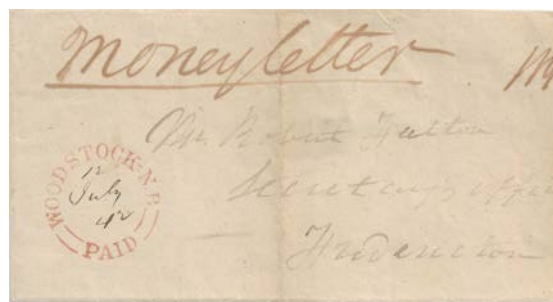 Money letter
Mr. Robert Fulton
Secretary's office
Fredericton
WOODSTOCK·N.B.
12
July
42
PAID